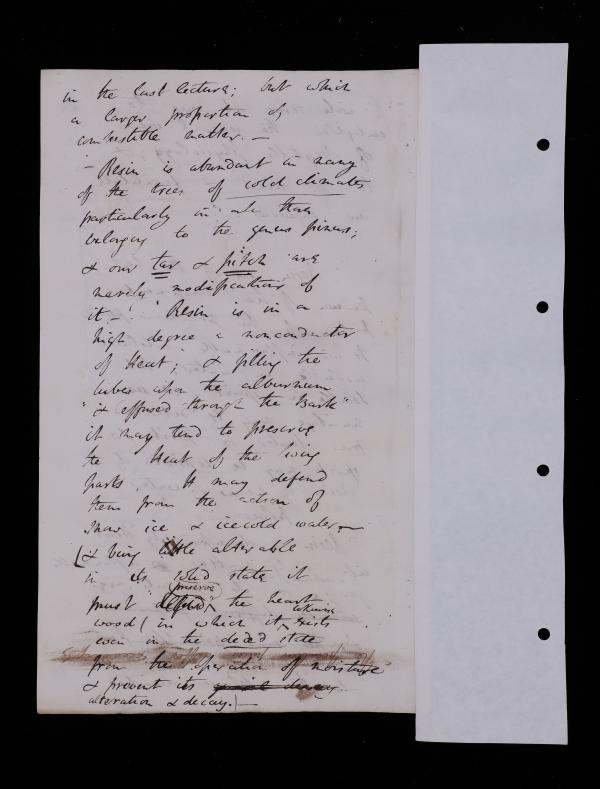 in the last lecture; but which
a larger proportion of
combustible matter. —
— Resin is abundant in many
of the trees of cold climates
particularly in those
belonging to the genus pinus;
& our tar & pitch are
merely modifications of
it. — Resin is in a
high degree a nonconductor
of Heat; & filling the
tubes upon the alburnum
"& effused through the Bark"
it may tend to preserve
the Heat of the living
parts. It may defend
them from the action of
snow ice & icecold water —
(& being little alterable
in its solid state it
preserve
must defend the heart
likewise
wood (in which it exists
even in the dead state
from the operation of moisture
& prevent its
alteration & decay.) —